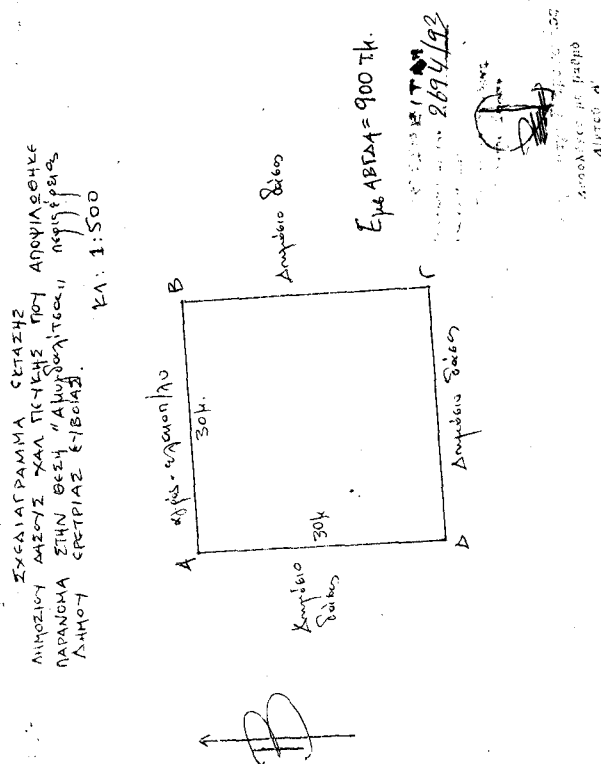 ΣΧΕΔΙΑΓΡΑΜΜΑ ΕΚΤΑΣΗΣ
ΔΗΜΟΣΙΟΥ ΔΑΣΟΥΣ ΧΑΛ ΠΕΥΚΗΣ ΠΟΥ ΑΠΟΨΙΛΩΘΗΚΕ
ΠΑΡΑΝΟΜΑ ΣΤΗΝ ΘΕΣΗ "Αμυγδαλίτσα,, περιφέρειας
ΔΗΜΟΥ ΕΡΕΤΡΙΑΣ ΕΥΒΟΙΑΣ.
ΚΛ: 1:500
αγρός - ελαιοπ/λυ
Α
30μ.
Β
Δημόσιο
δάσος
30μ
Δημόσιο δάσος
Δ
Δημόσιο δάσος
Γ
Εμβ ΑΒΓΔΑ = 900 τ.μ.
2694/92
Β